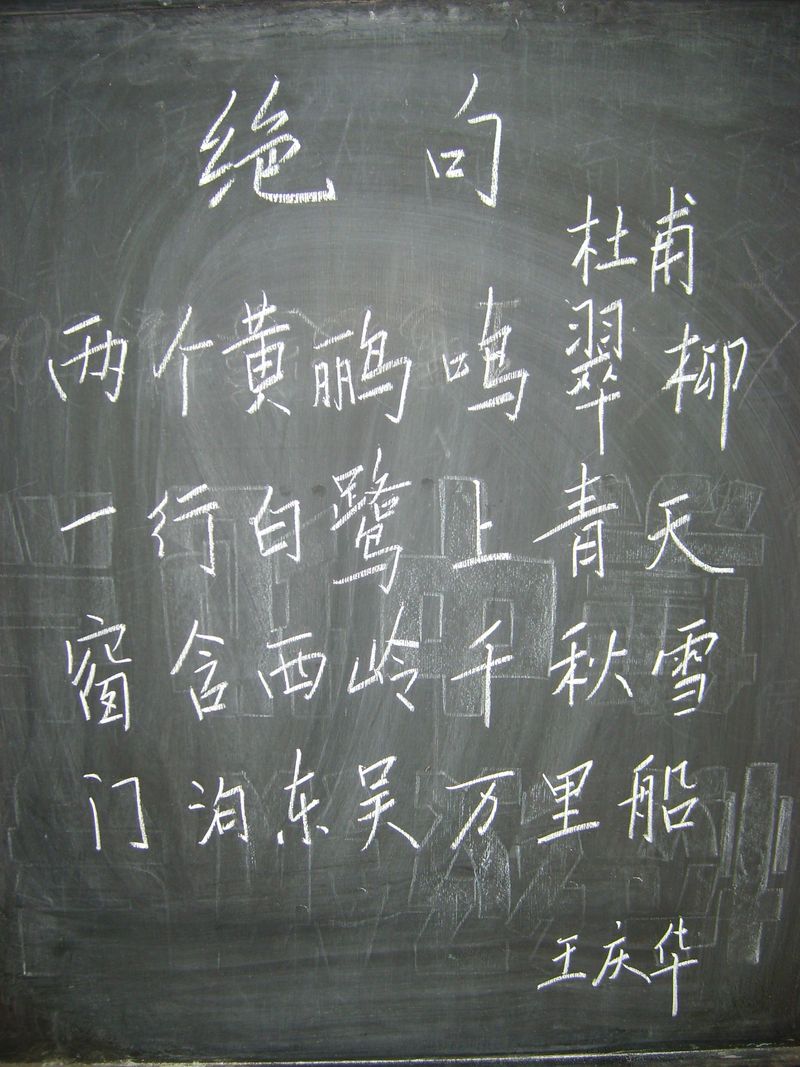 绝句
杜甫
两个黄鹂鸣翠柳
一行白鹭上青天
窗含西岭千秋雪
门泊东吴万里船
王庆华